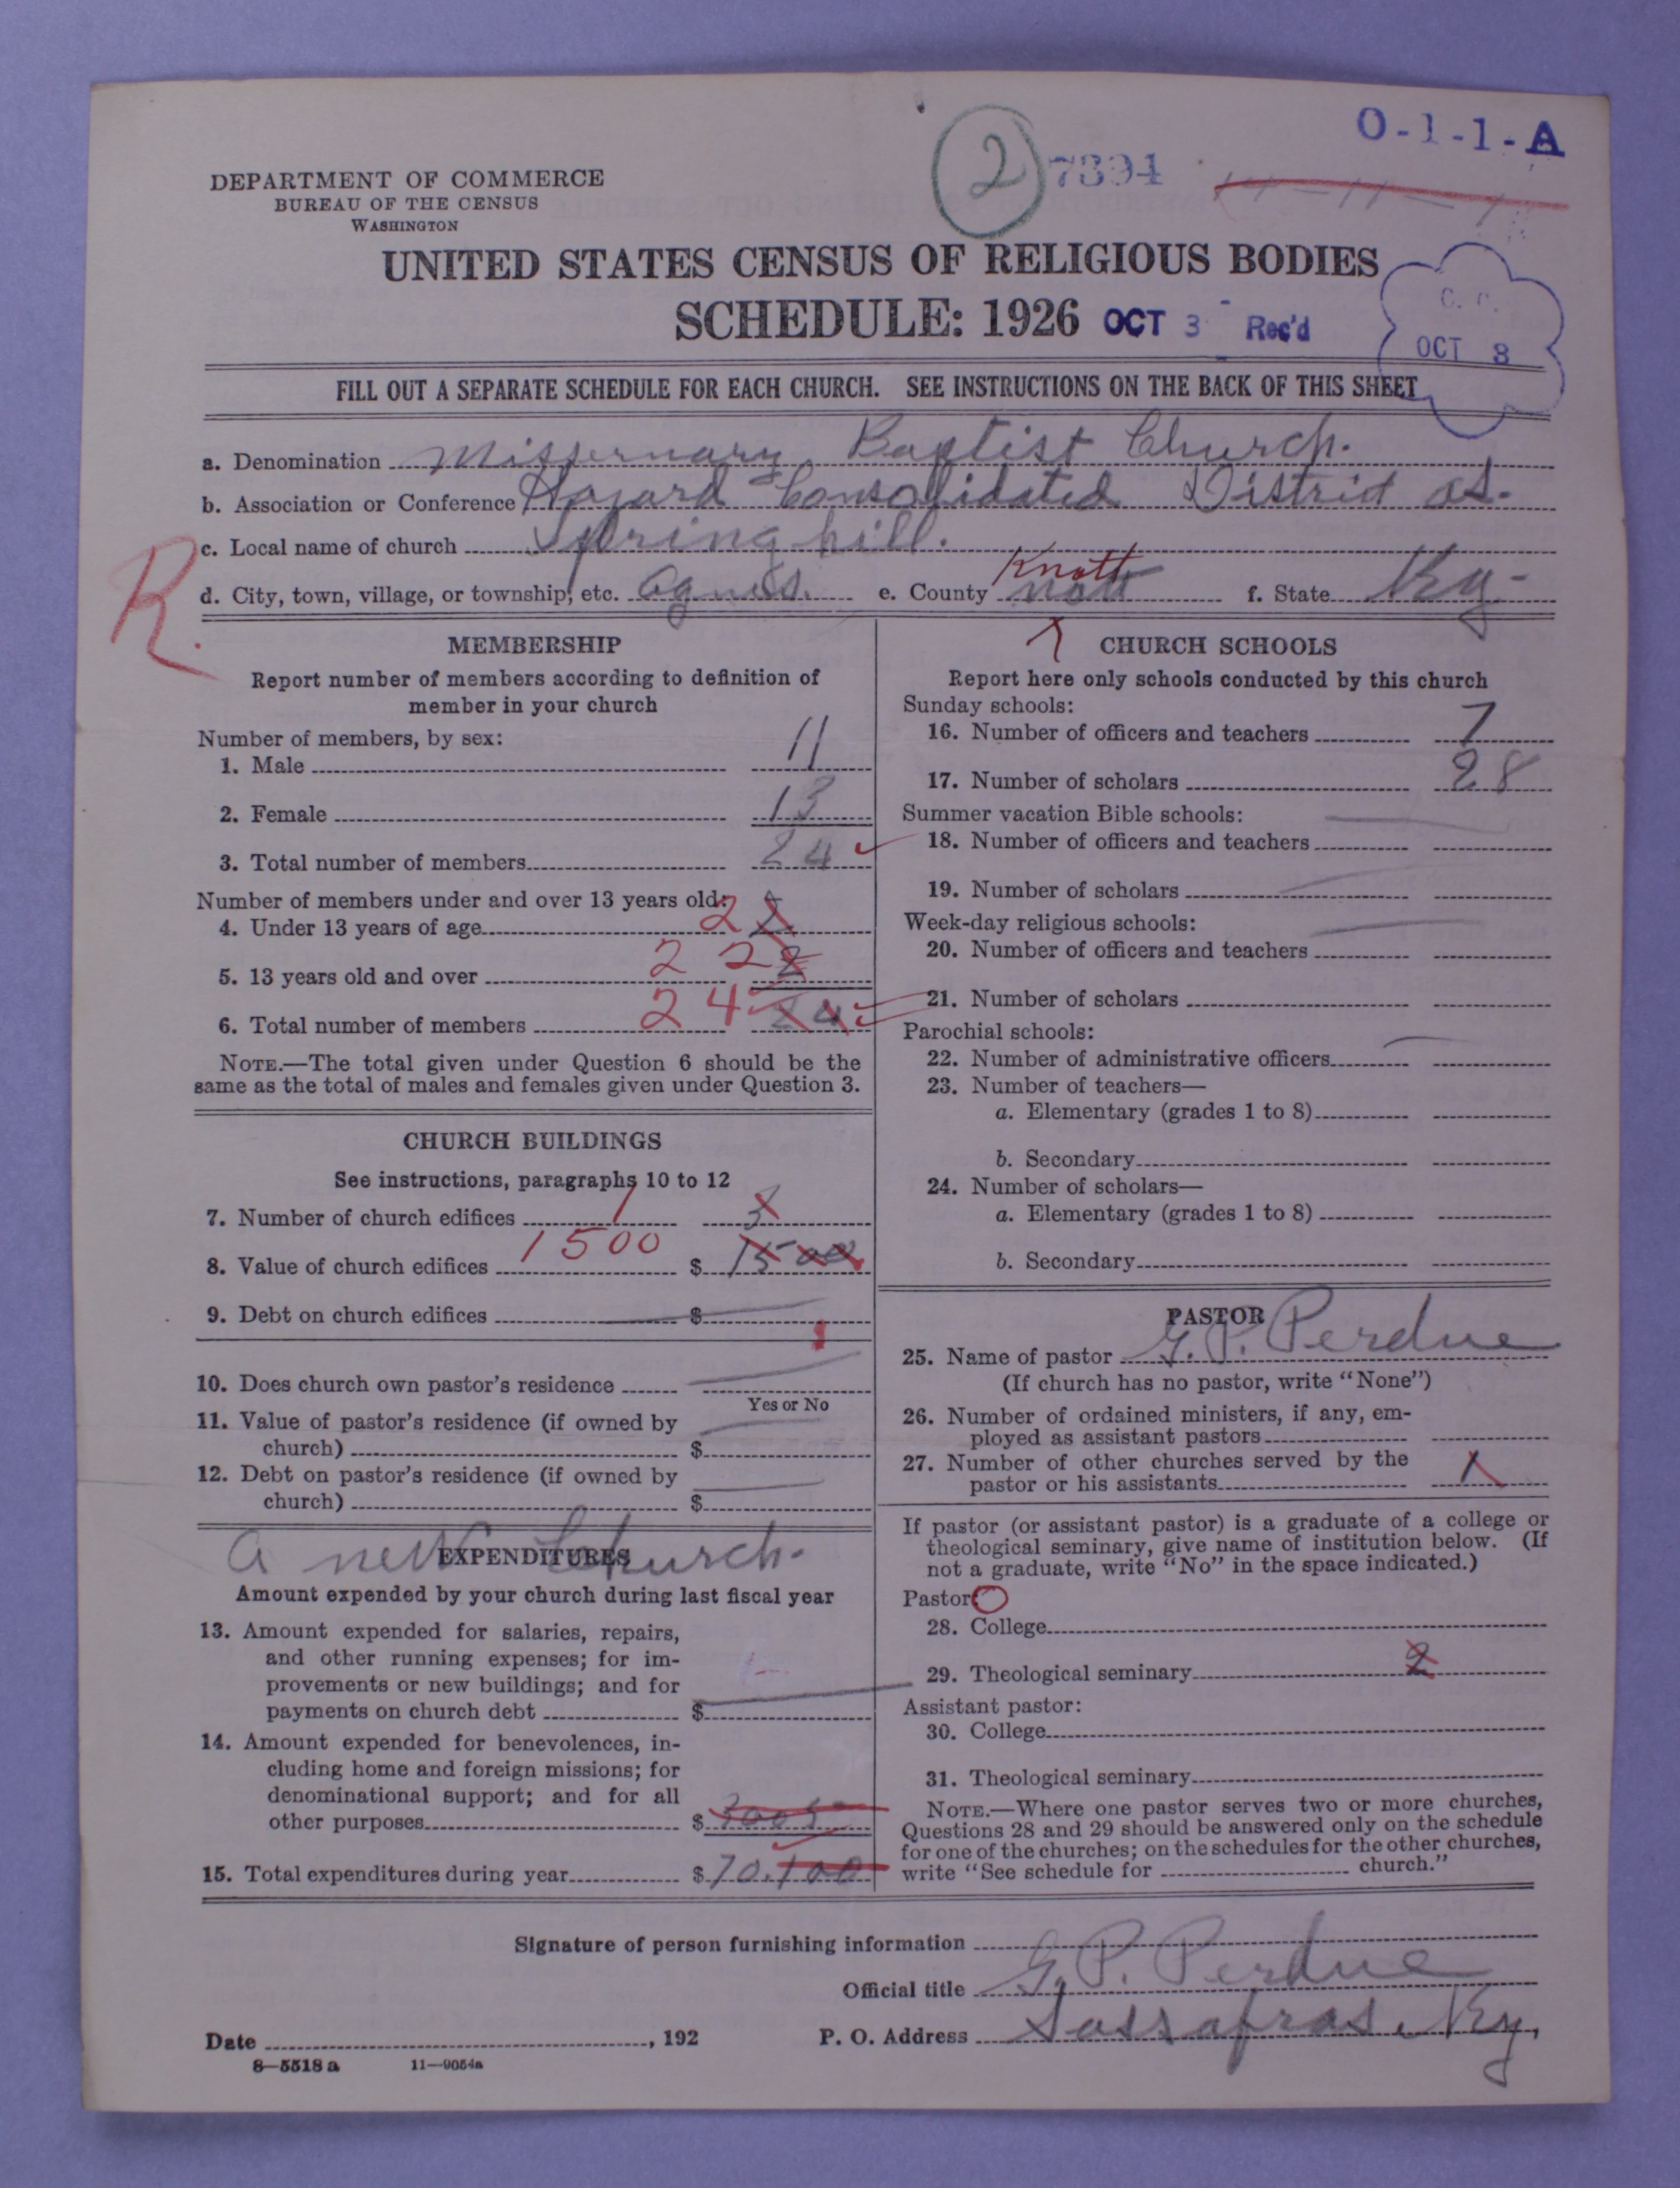 O-1-1-A
2 7394
DEPARTMENT OF COMMERCE
BUREAU OF THE CENSUS
WASHINGTON
UNITED STATES CENSUS OF RELIGIOUS BODIES
SCHEDULE: 1926 OCT 3 Rec'd
C. C.
OCT 8
FILL OUT A SEPARATE SCHEDULE FOR EACH CHURCH. SEE INSTRUCTIONS ON THE BACK OF THIS SHEET
a. Denomination Missernary Baptist Church.
b. Association or Conference Hazard Consolidated District as.
c. Local name of church Spring hill.
d. City, town, village, or township, etc. Agnes. e. County nott Knott f. State Ky.
R.
MEMBERSHIP
Report number of members according to definition of
member in your church
Number of members, by sex:
1. Male 11
2. Female 13
3. Total number of members 24
Number of members under and over 13 years old:
4. Under 13 years of age 2 2
5. 13 years old and over 22
6. Total number of members 24 24
NOTE.—The total given under Question 6 should be the
same as the total of males and females given under Question 3.
CHURCH BUILDINGS
See instructions, paragraphs 10 to 12
7. Number of church edifices 1
8. Value of church edifices 1500 $ 1500
9. Debt on church edifices $
10. Does church own pastor's residence
Yes or No
11. Value of pastor's residence (if owned by
church) $
12. Debt on pastor's residence (if owned by
church) $
a new Church.
EXPENDITURES
Amount expended by your church during last fiscal year
13. Amount expended for salaries, repairs,
and other running expenses; for im-
provements or new buildings; and for
payments on church debt $
14. Amount expended for benevolences, in-
cluding home and foreign missions; for
denominational support; and for all
other purposes $
15. Total expenditures during year $ 70.100
CHURCH SCHOOLS
Report here only schools conducted by this church
Sunday schools:
16. Number of officers and teachers 7
17. Number of scholars 28
Summer vacation Bible schools:
18. Number of officers and teachers
19. Number of scholars
Week-day religious schools:
20. Number of officers and teachers
21. Number of scholars
Parochial schools:
22. Number of administrative officers
23. Number of teachers—
a. Elementary (grades 1 to 8)
b. Secondary
24. Number of scholars—
a. Elementary (grades 1 to 8)
b. Secondary
PASTOR
25. Name of pastor G. P. Perdue
(If church has no pastor, write "None")
26. Number of ordained ministers, if any, em-
ployed as assistant pastors
27. Number of other churches served by the
pastor or his assistants 1
If pastor (or assistant pastor) is a graduate of a college or
theological seminary, give name of institution below. (If
not a graduate, write "No" in the space indicated.)
Pastor:
28. College
29. Theological seminary 2
Assistant pastor:
30. College
31. Theological seminary
NOTE.—Where one pastor serves two or more churches,
Questions 28 and 29 should be answered only on the schedule
for one of the churches; on the schedules for the other churches,
write "See schedule for church."
Signature of person furnishing information
Official title G. P. Perdue
Date , 192 P. O. Address Sassafras, Ky,
8—5518 a 11—9054a